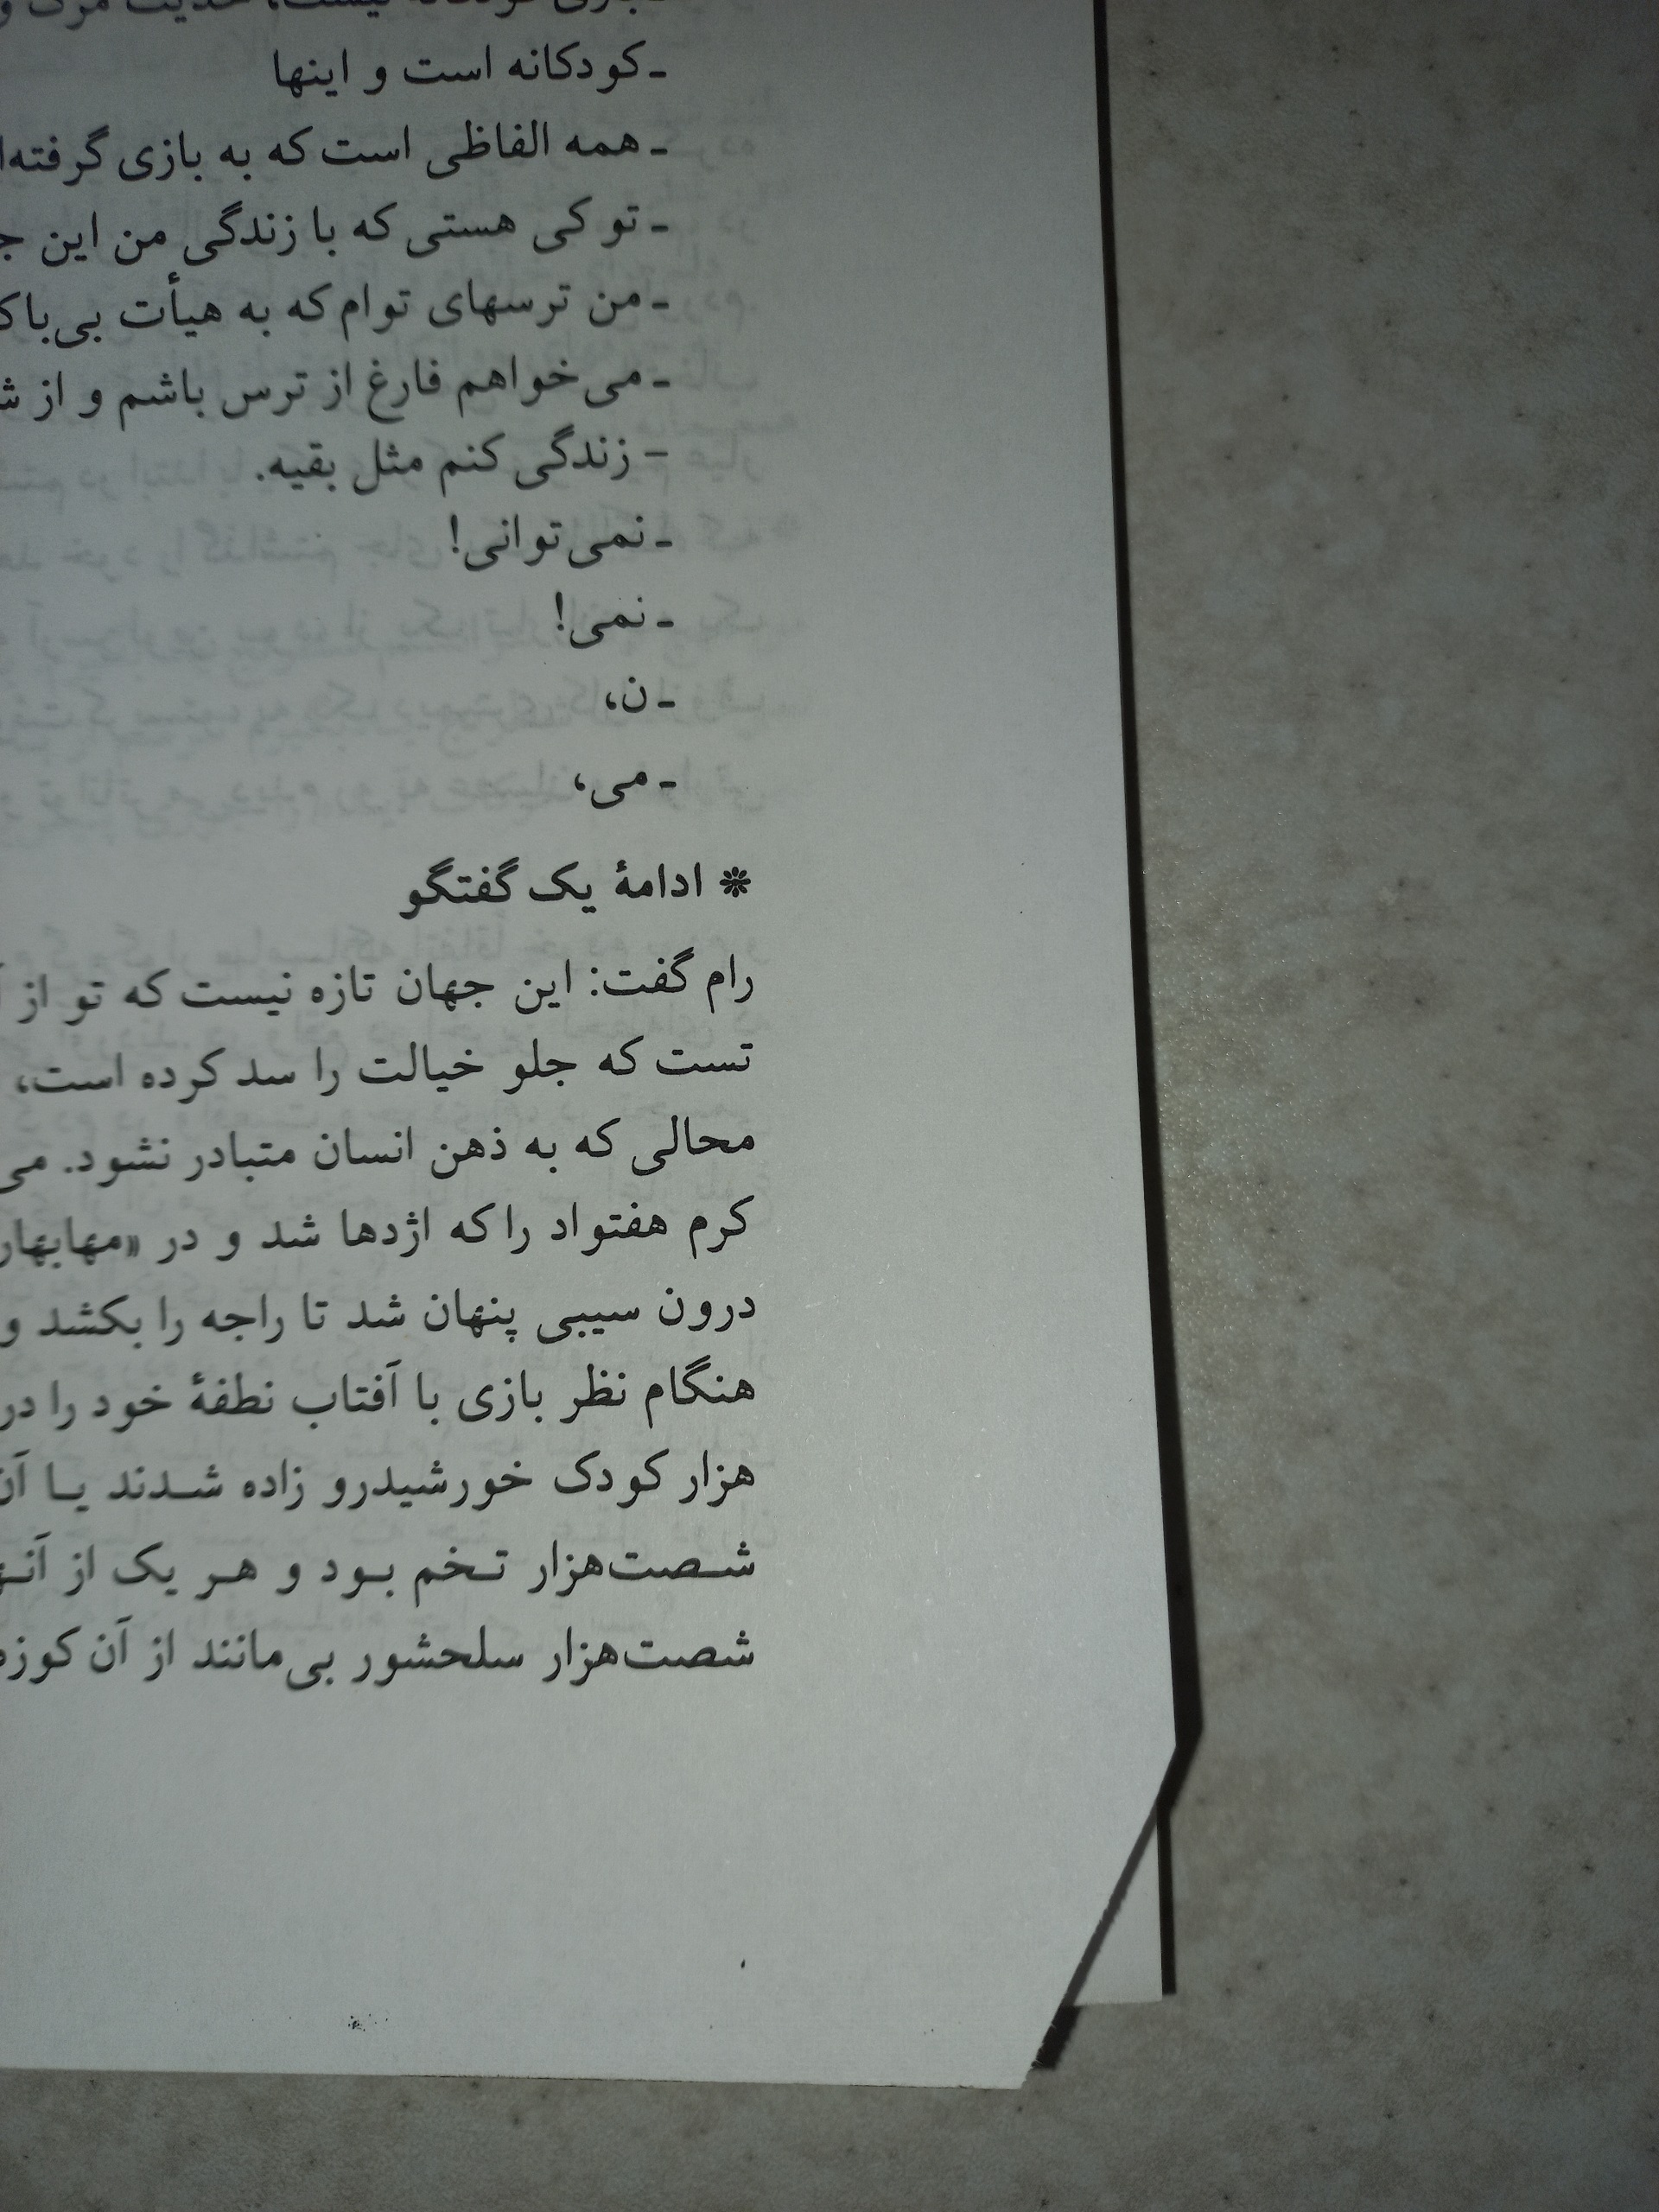 ـ کودکانه است و اینها
ـ همه الفاظی است که به بازی
ـ تو کی هستی که با زندگی من این
ـ من ترسهای توام که به هیأت
ـ می‌خواهم فارغ از ترس باشم و از
– زندگی کنم مثل بقیه.
ـ نمی‌توانی!
ـ نمی!
ـ ن،
ـ می،
❋ ادامهٔ یک گفتگو
رام گفت: این جهان تازه نیست که تو از
تست که جلو خیالت را سد کرده است،
محالی که به ذهن انسان متبادر نشود.
کرم هفتواد را که اژدها شد و در
درون سیبی پنهان شد تا راجه را بکشد و
هنگام نظر بازی با آفتاب نطفهٔ خود را در
هزار کودک خورشیدرو زاده شدند یا
شصت‌هزار تخم بود و هر یک از
شصت‌هزار سلحشور بی‌مانند از آن